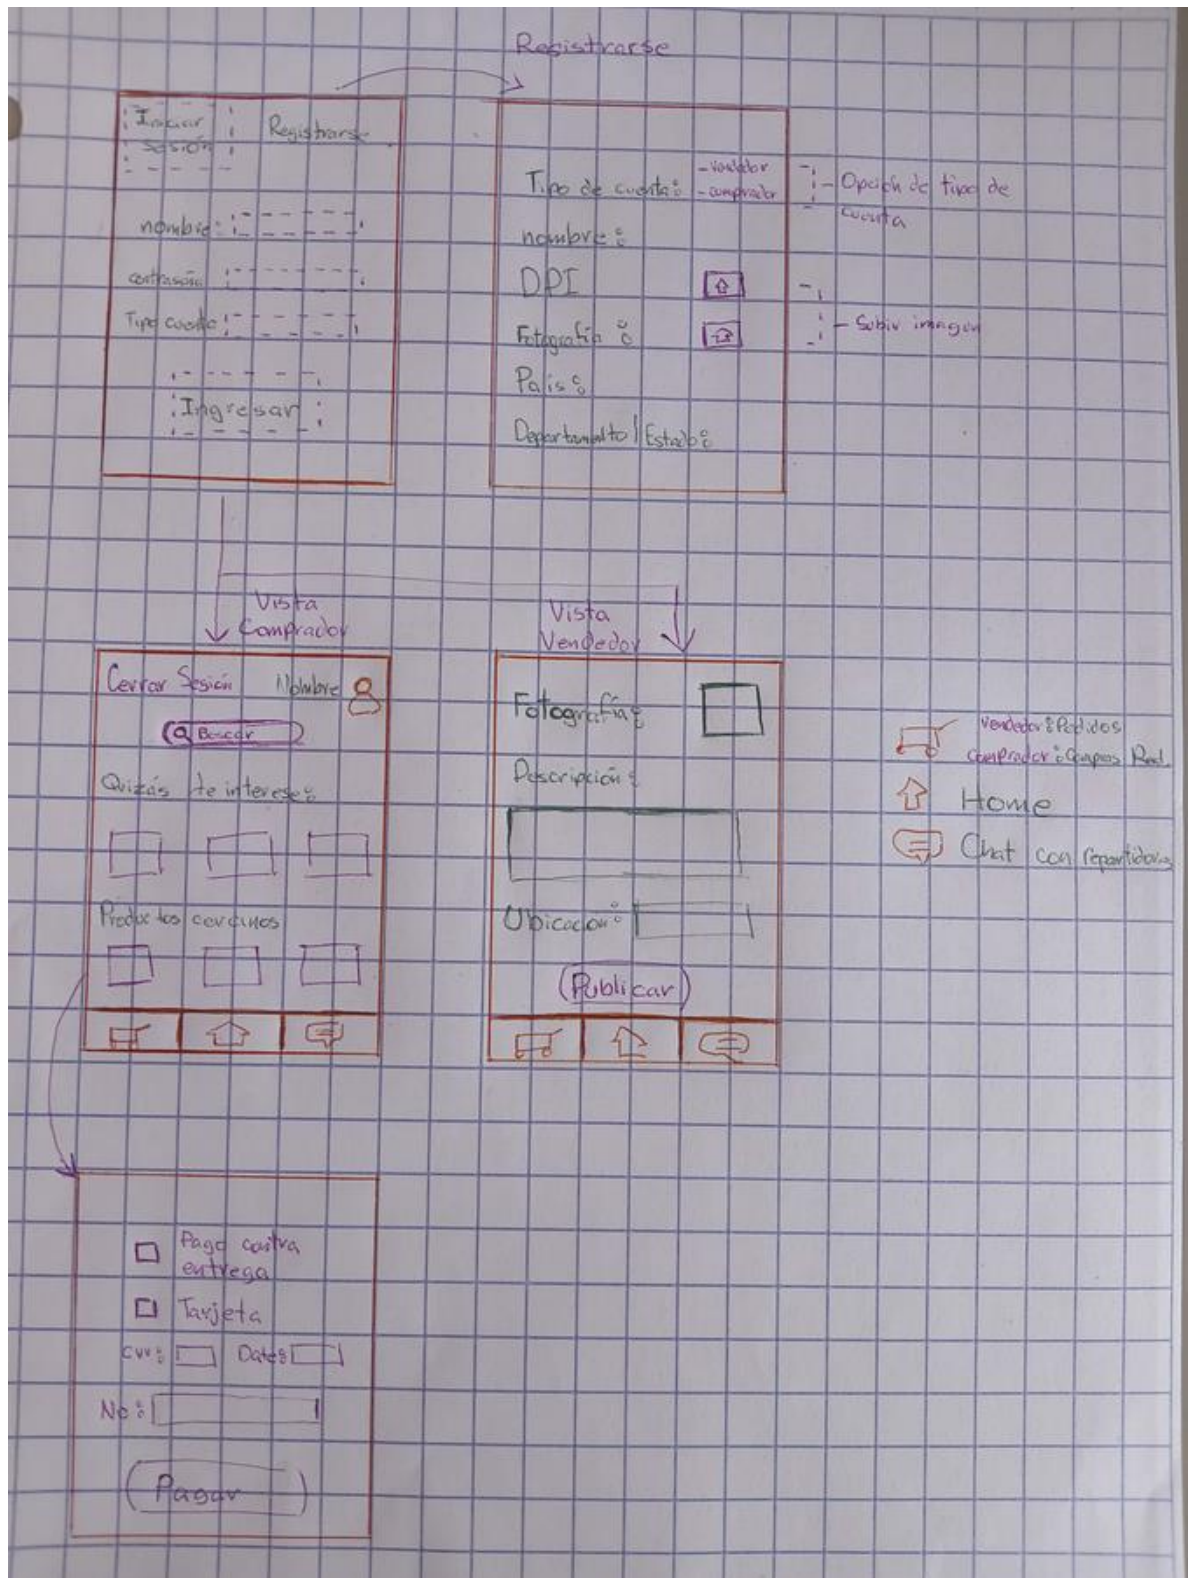 Registrarse
Iniciar
sesión
Registrarse
nombre:
contraseña
Tipo cuenta:
Ingresar
Tipo de cuenta:
-vendedor
-comprador
- Opción de tipo de
cuenta
nombre:
DPI
Fotografía:
- Subir imagen
País:
Departamento/Estado:
Vista
Comprador
Cerrar Sesión
Nombre
Buscar
Quizás te interese:
Productos cercanos
Vista
Vendedor
Fotografía:
Descripción:
Ubicacion:
Publicar
vendedor: Pedidos
comprador: Compras
Home
Chat con repartidores
Pago contra
entrega
Tarjeta
CVV:
Date:
No:
Pagar